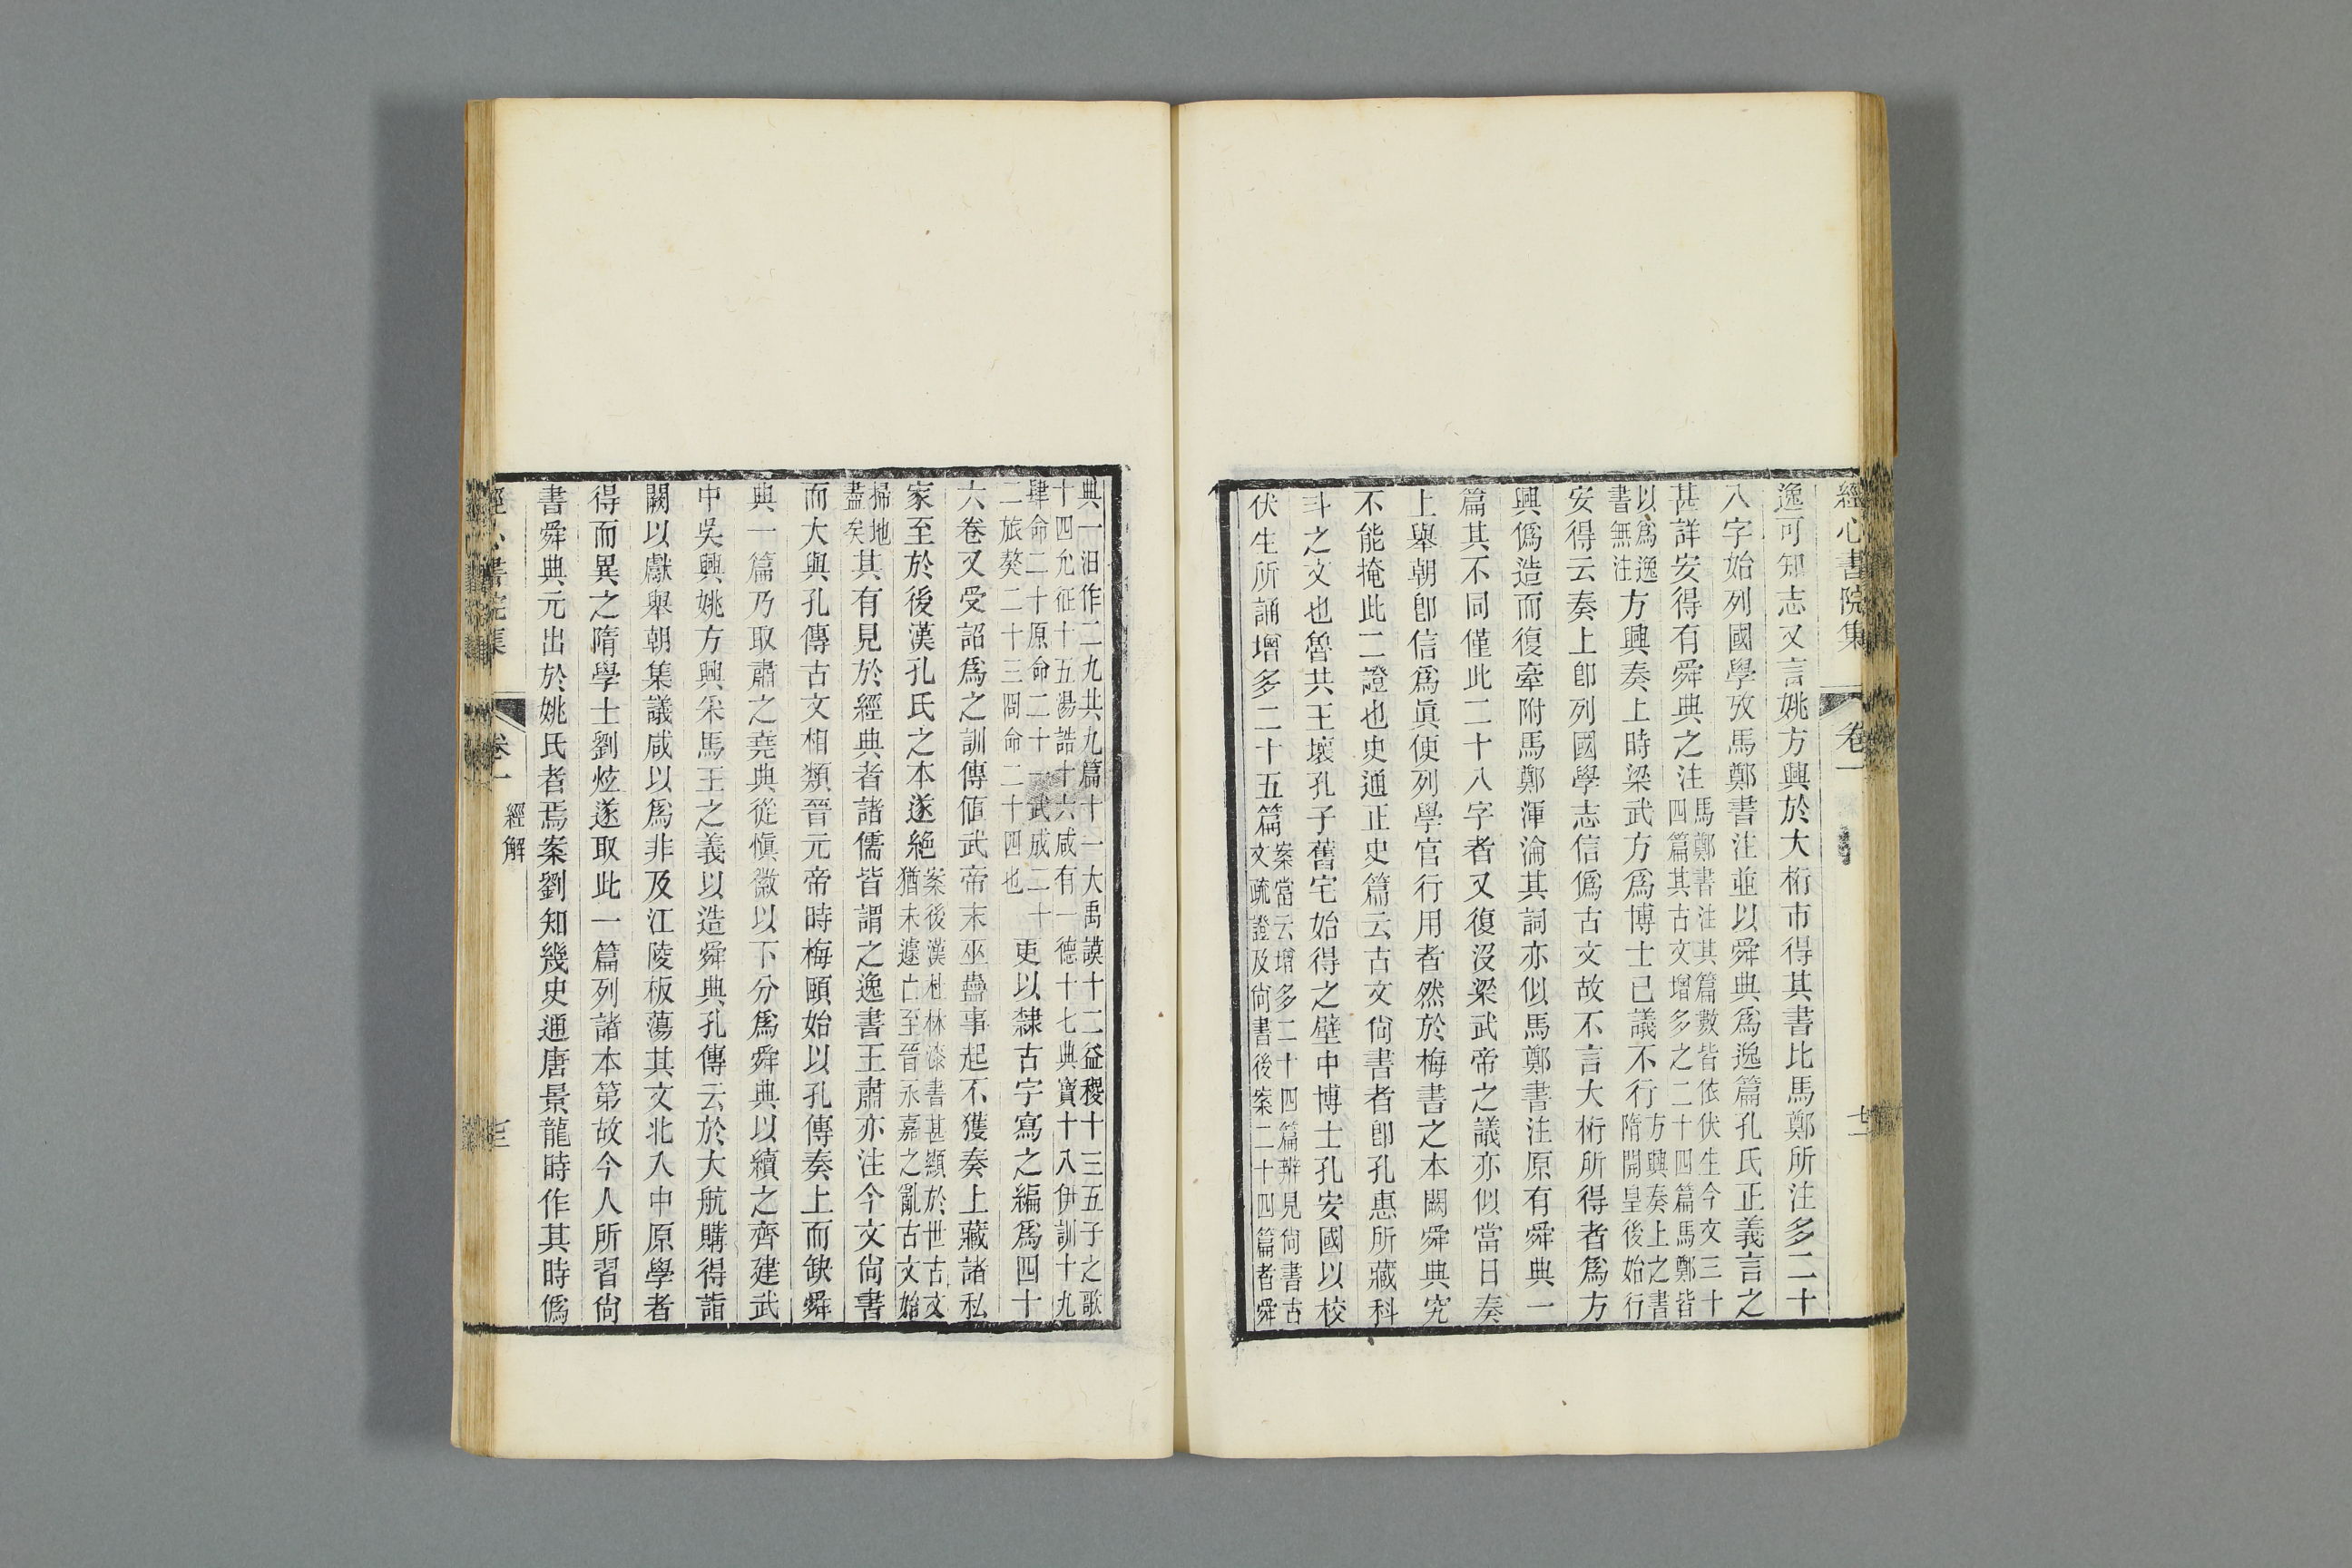 經心書院集
卷一
七一
逸可知志又言姚方興於大桁市得其書比馬鄭所注多二十
八字始列國學攷馬鄭書注並以舜典爲逸篇孔氏正義言之
甚詳安得有舜典之注馬鄭書注其篇數皆依伏生今文三十
四篇其古文增多之二十四篇馬鄭皆
以爲逸
書無注方興奏上時梁武方爲博士已議不行方興奏上之書
隋開皇後始行
安得云奏上卽列國學志信僞古文故不言大桁所得者爲方
興僞造而復牽附馬鄭渾淪其詞亦似馬鄭書注原有舜典一
篇其不同僅此二十八字者又復沒梁武帝之議亦似當日奏
上舉朝卽信爲眞使列學官行用者然於梅書之本闕舜典究
不能掩此二證也史通正史篇云古文尙書者卽孔惠所藏科
斗之文也魯共王壞孔子舊宅始得之壁中博士孔安國以校
伏生所誦增多二十五篇案當云增多二十四篇辨見尙書古
文疏證及尙書後案二十四篇者舜
典一汨作二九共九篇十一大禹謨十二益稷十三五子之歌
十四允征十五湯誥十六咸有一德十七典寶十八伊訓十九
肆命二十原命二十一武成二十
二旅獒二十三冏命二十四也更以隸古字寫之編爲四十
六卷又受詔爲之訓傳値武帝末巫蠱事起不獲奏上藏諸私
家至於後漢孔氏之本遂絶案後漢杜林漆書甚顯於世古文
猶未遽亡至晉永嘉之亂古文始
掃地
盡矣其有見於經典者諸儒皆謂之逸書王肅亦注今文尙書
而大與孔傳古文相類晉元帝時梅頤始以孔傳奏上而缺舜
典一篇乃取肅之堯典從愼徽以下分爲舜典以續之齊建武
中吳興姚方興采馬王之義以造舜典孔傳云於大航購得詣
闕以獻舉朝集議咸以爲非及江陵板蕩其文北入中原學者
得而異之隋學士劉炫遂取此一篇列諸本第故今人所習尙
書舜典元出於姚氏者焉案劉知幾史通唐景龍時作其時僞
經心書院集
卷一
經解